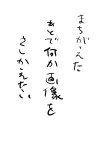 まちがえた
あとで何か画像を
さしかえたい